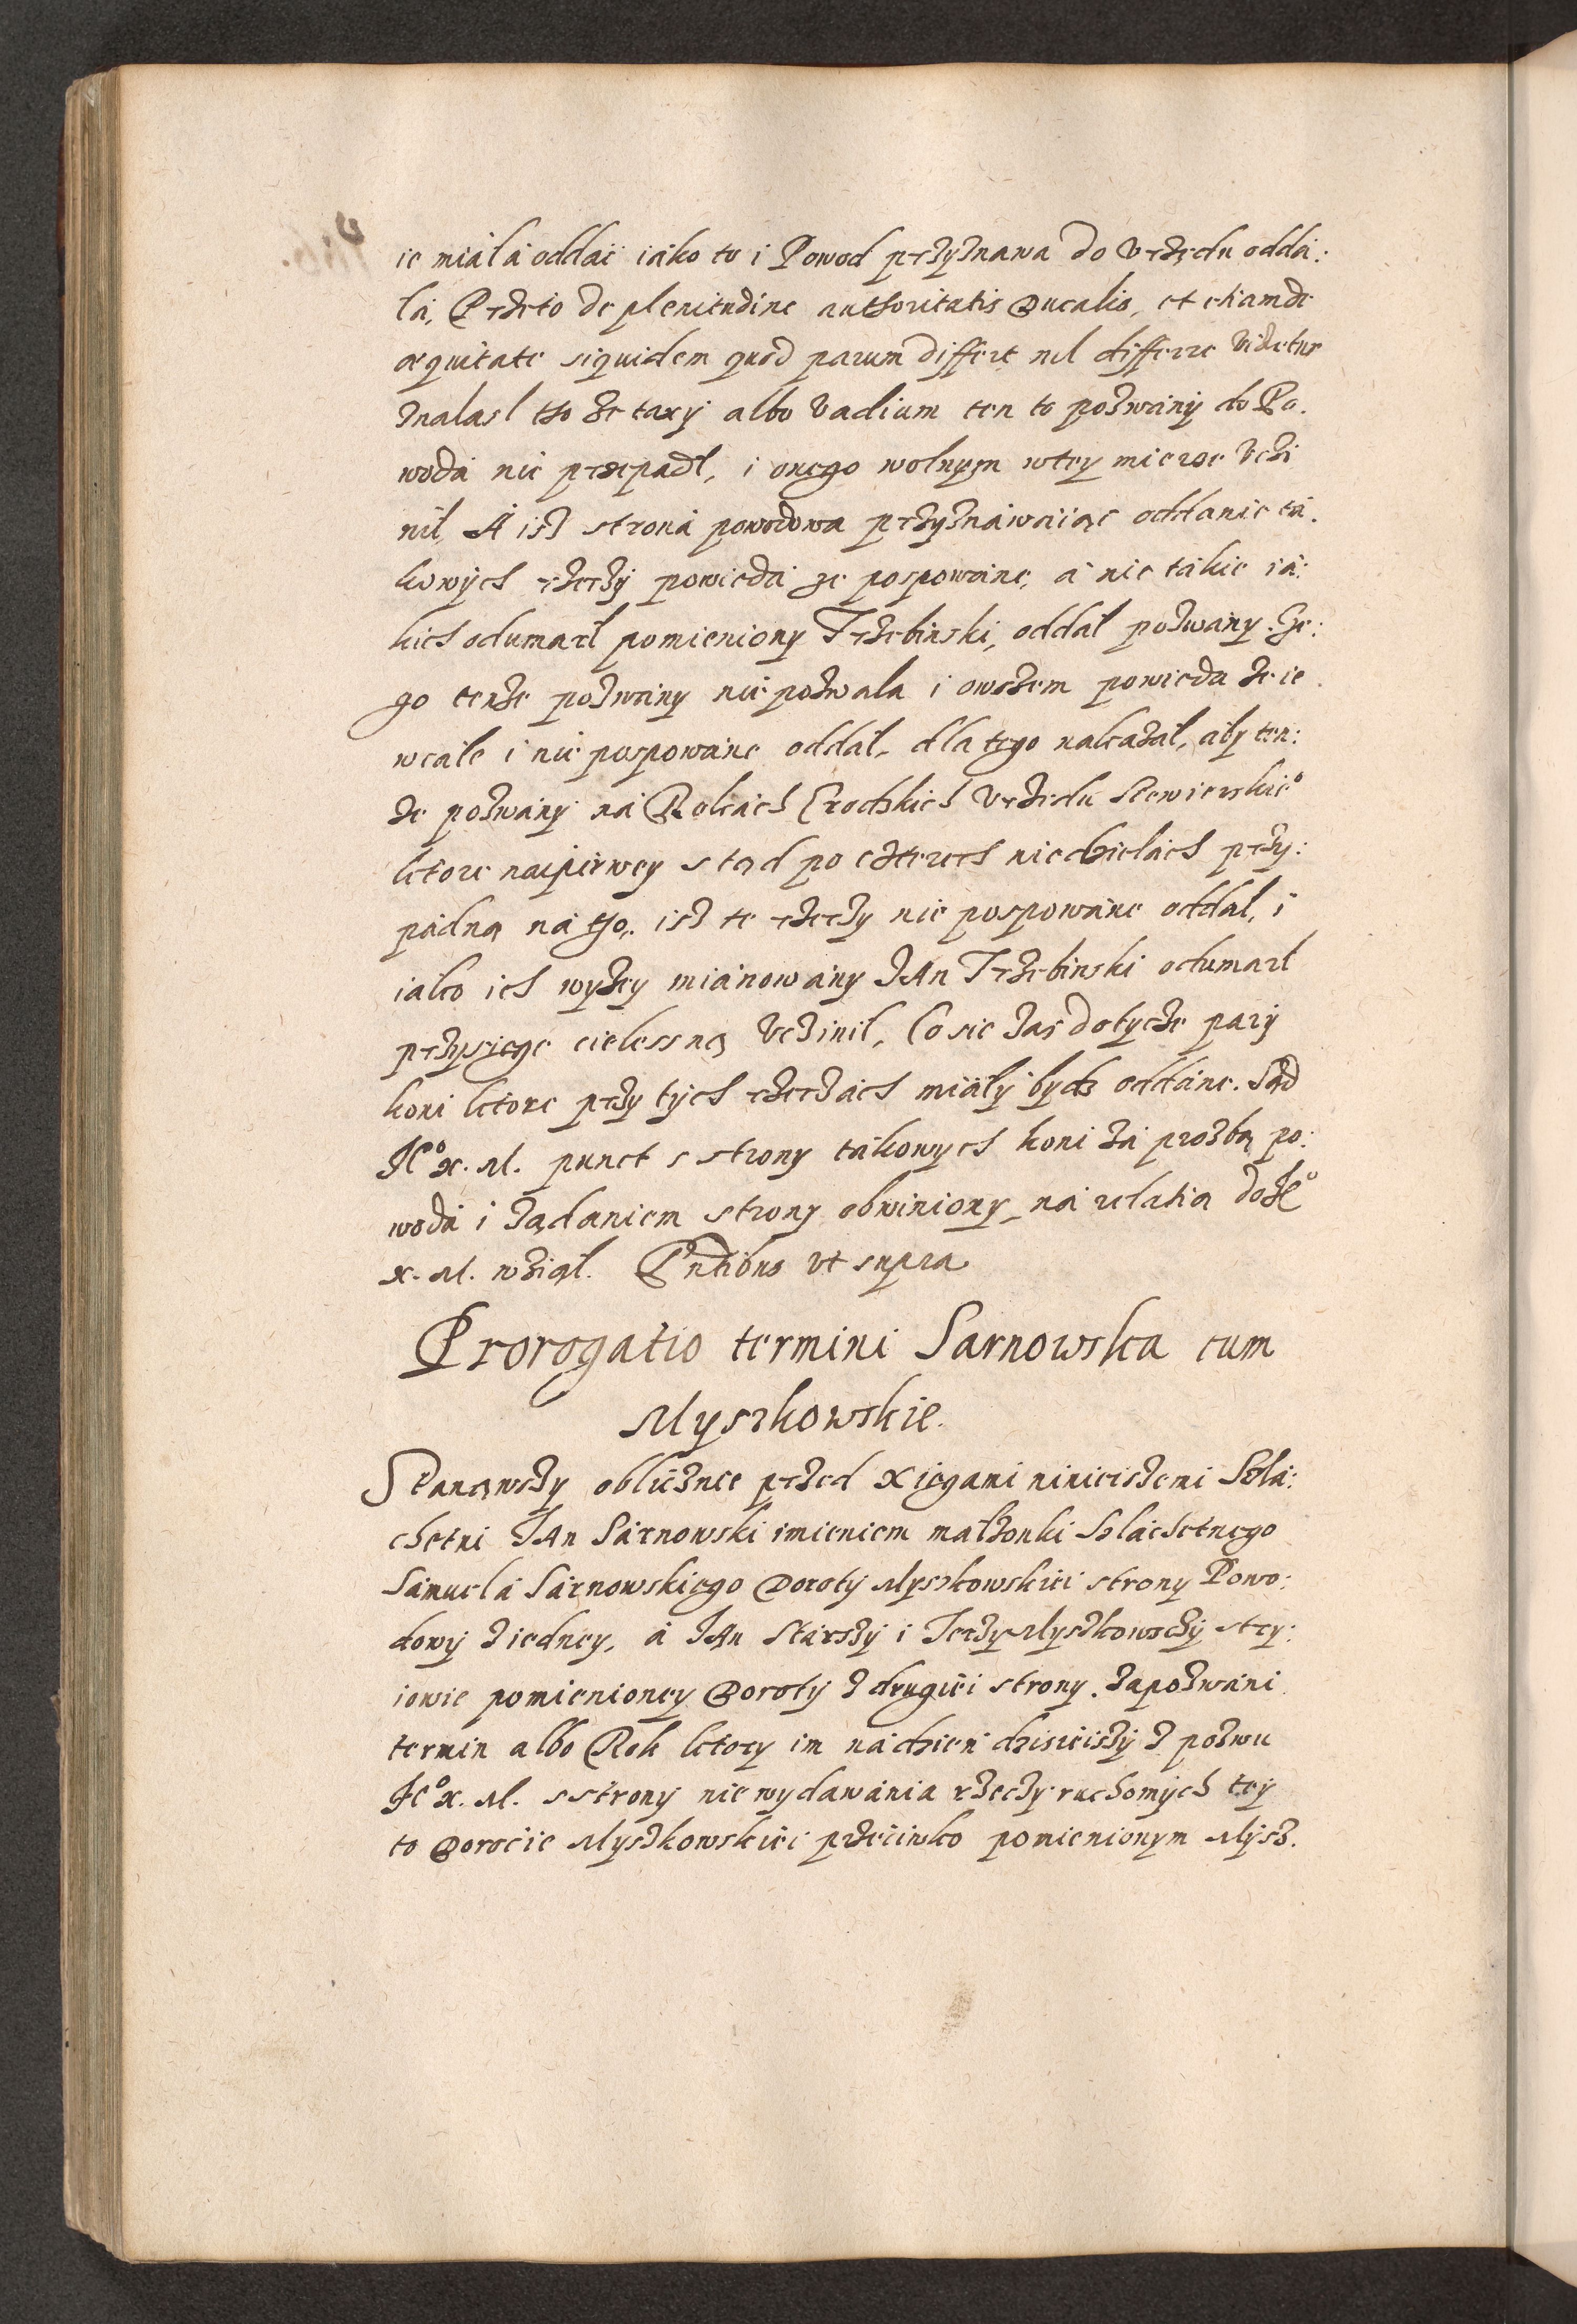 ie miała oddać iako to i Powod przyznawa do Vrzędu odda:
ła, Przeto de plenitudine authoritatis Ducalis, et etiam de
æquitate siquidem quod parum differt nil differre videtur
znalasł tho że taxy albo vadium ten to pozwany do Po.
woda nie przepadł, i onego wolnym wtey mierze vczi
nił, A isz strona powodowa przyznawaiąc oddanie ta.
kowych rzeczy powieda że pospowane, a nie takie ia:
kich odumarł pomieniony Trzebinski, oddał pozwany. Cze:
go tenże pozwany nie pozwala i owszem powieda że ie
wcale i nie pospowane oddał, dla tego nakazał, aby ten:
że pozwany na Rokach Grodzkich Vrzedu Siewierskieº
ktore napirwey stąd po czterech niedzielach przy:
padną na tho, isz te rzeczy nie pospowane oddał, i
iako ich wyżey mianowany JAn Trzebinski odumarł
przysięgę cielessną vczinił, Co sie zas dotycze pary
koni ktore przy tych rzeczach miały bydz oddane. Sąd
JEº X. M. punct s strony takowych koni za prozbą po:
woda i żądaniem strony obwiniony, na relatią do JEº
X. M. wziął. Pñtibus vt supra
Prorogatio termini Sarnowska cum
Myszkowskie.
Stanąwszy obliczne przed Xięgami ninieiszemi Szla:
chetni JAn Sarnowski imieniem małżonki Szlachetnego
Samuela Sarnowskiego Doroty Myszkowskiei strony Powo:
dowy z iedney, a JAn Starszy i Jerzy Myszkowsczy stry:
iowie pomienioney Doroty z drugiei strony. Zapozwani
termin albo Rok ktory im na dzien dzisieiszy z pozwu
JEº X. M. s strony nie wydawania rzeczy ruchomych tey
to Dorocie Myszkowskiei przeciwko pomienionym Mysz.